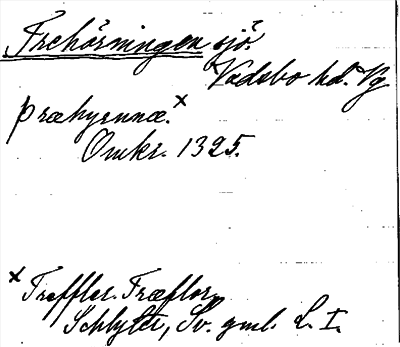 Trehörningen sjö.
Vadsbo hd. Vg
þræhyrnnæ.x
Omkr. 1325.
x Treffler. Træflor,
Schlyter, Sv. gml. L. I.